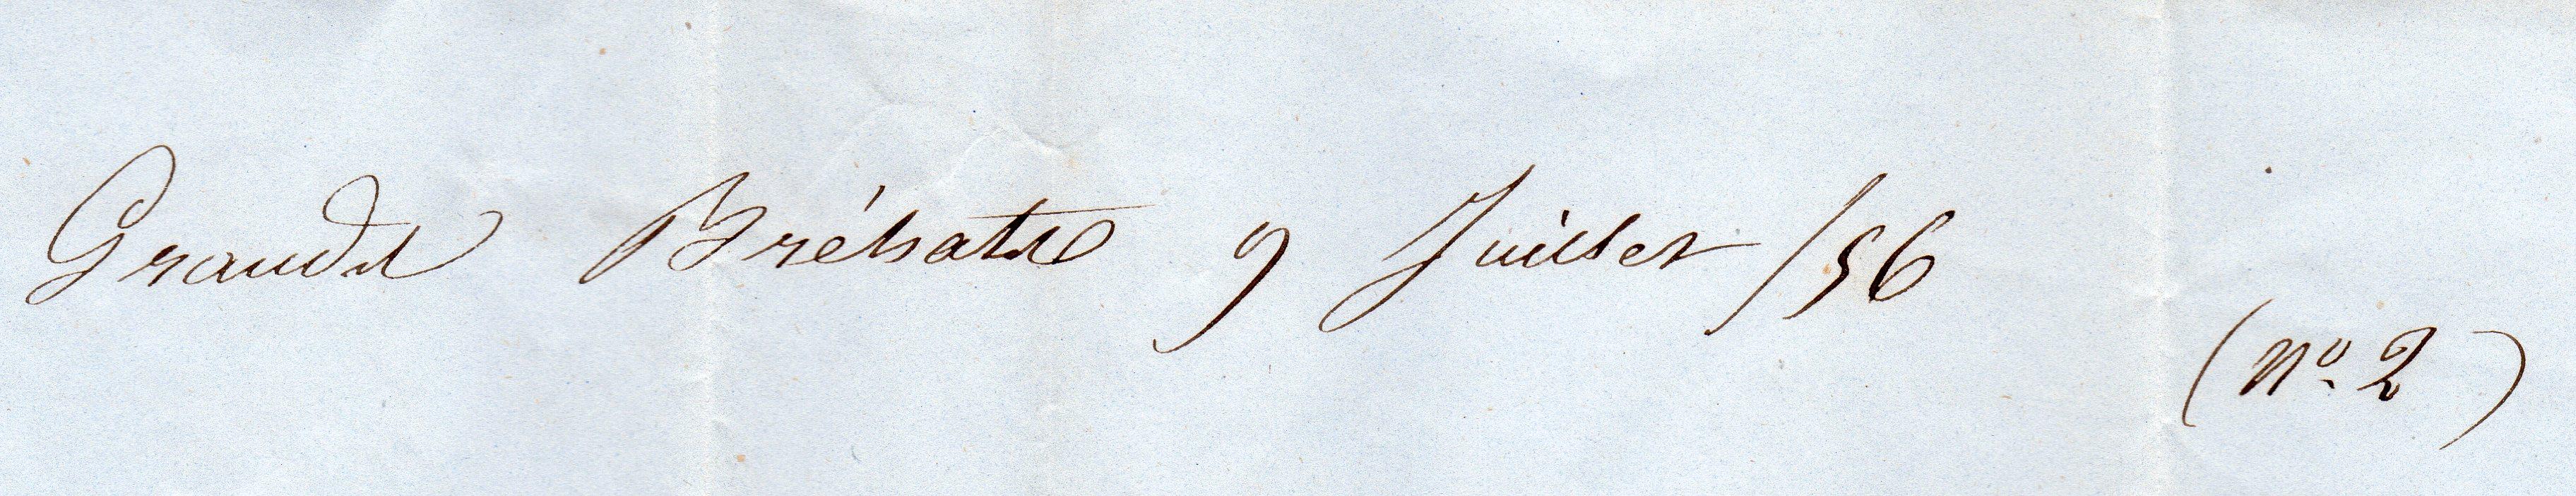 Grande Bréhate 9 Juillet /56
(No. 2)